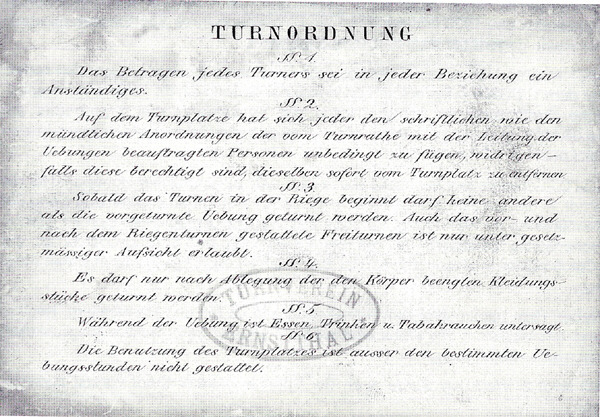 TURNORDNUNG
N. 1.
Das Betragen jedes Turners sei in jeder Beziehung ein
Anständiges.
N. 2.
Auf dem Turnplatze hat sich jeder den schriftlichen wie den
mündlichen Anordnungen der vom Turnrathe mit der Leitung der
Uebungen beauftragten Personen unbedingt zu fügen, widrigen-
falls diese berechtigt sind, dieselben sofort vom Turnplatz zu entfernen
N. 3
Sobald das Turnen in der Riege beginnt darf keine andere
als die vorgeturnte Uebung geturnt werden. Auch das vor- und
nach dem Riegenturnen gestattete Freiturnen ist nur unter gesetz-
mässiger Aufsicht erlaubt.
N. 4.
Es darf nur nach Ablegung der den Körper beengten Kleidungs-
stücke geturnt werden.
N. 5
Während der Uebung ist Essen, Trinken u. Tabakrauchen untersagt.
N. 6.
Die Benutzung des Turnplatzes ist ausser den bestimmten Ue-
bungsstunden nicht gestattet.
TURNVEREIN
ERNSTTHAL